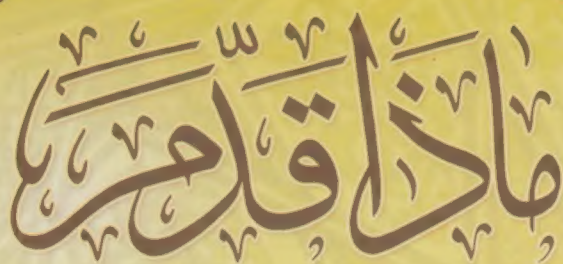 ماذا قدّم